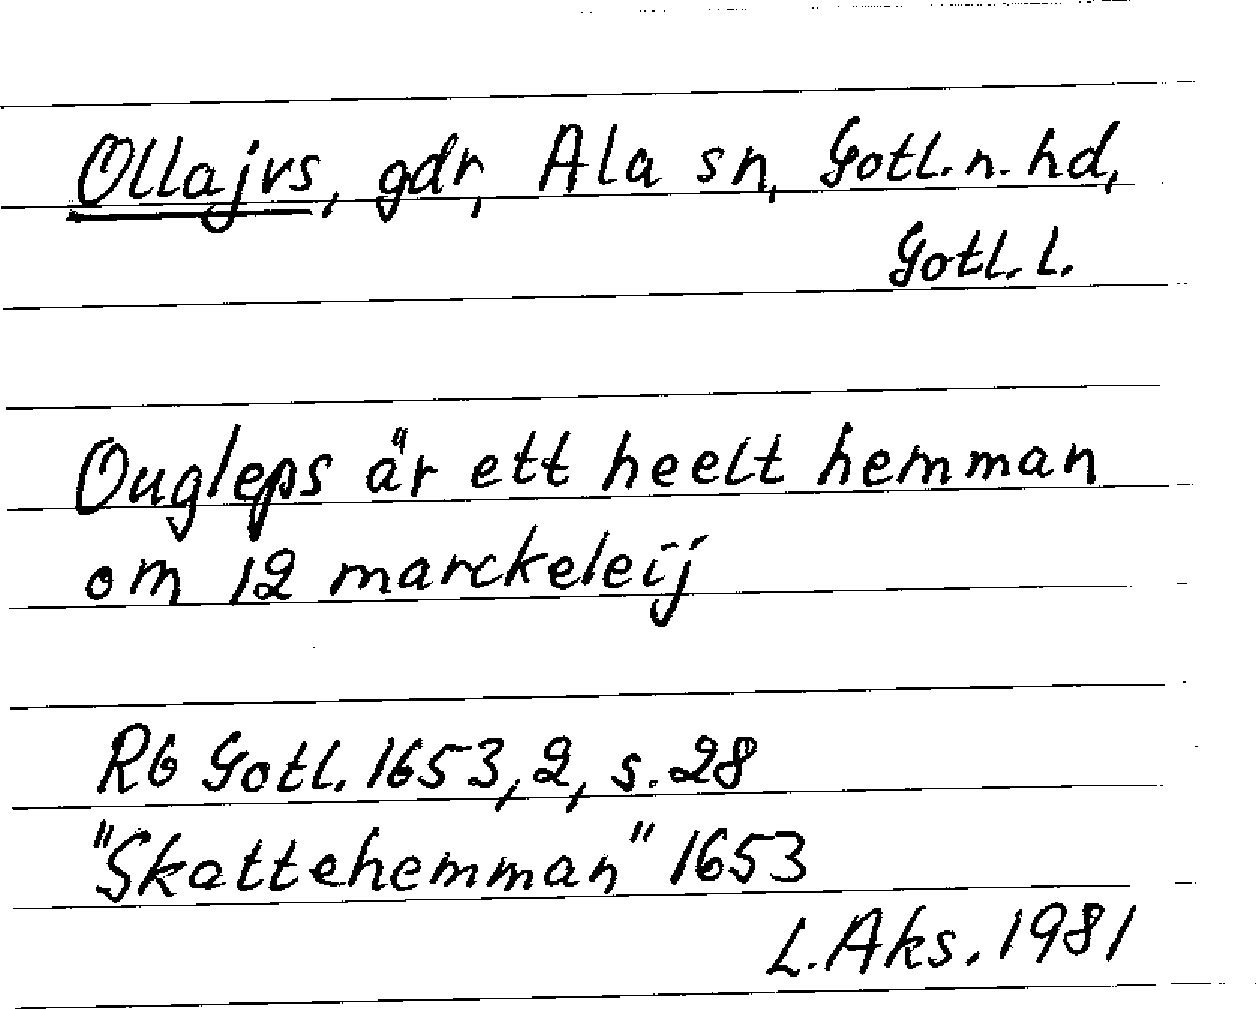 Ollajvs, gdr, Ala sn, Gotl. n. hd,
Gotl. l.
Ougleps är ett heelt hemman
om 12 marckeleij
Rb Gotl. 1653, 2, s. 28
"Skattehemman" 1653
L. Aks. 1981